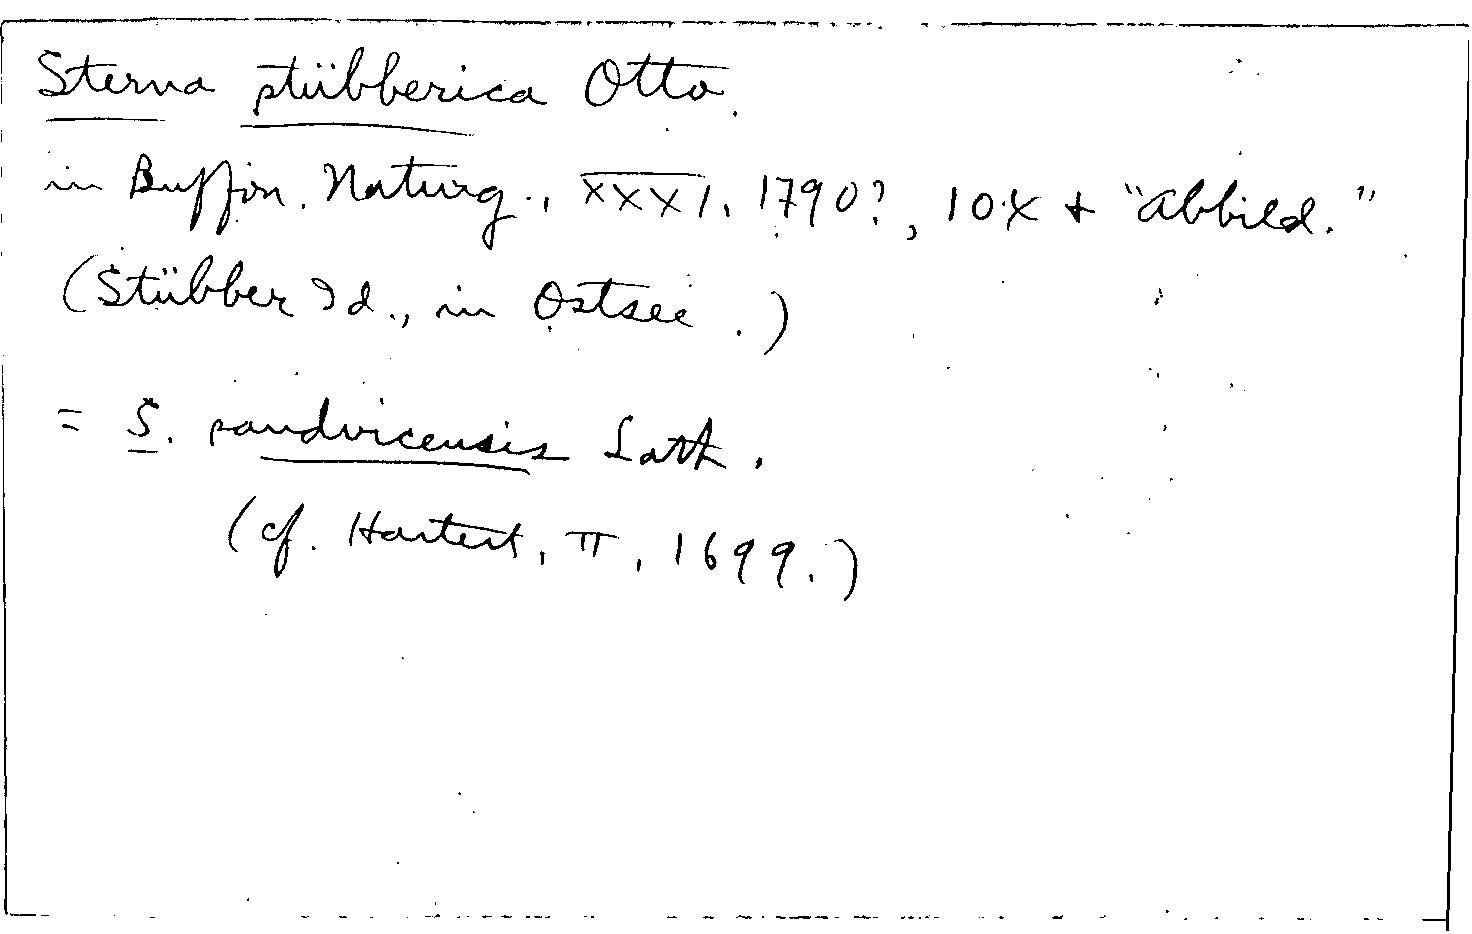 Sterna stübberica Otto.
in Buffon. Naturg., XXXI, 1790?, 10X + "abbild."
(Stübber Id., in Ostsee.)
= S. sandvicensis Lath.
(cf. Hartert, II, 1699.)